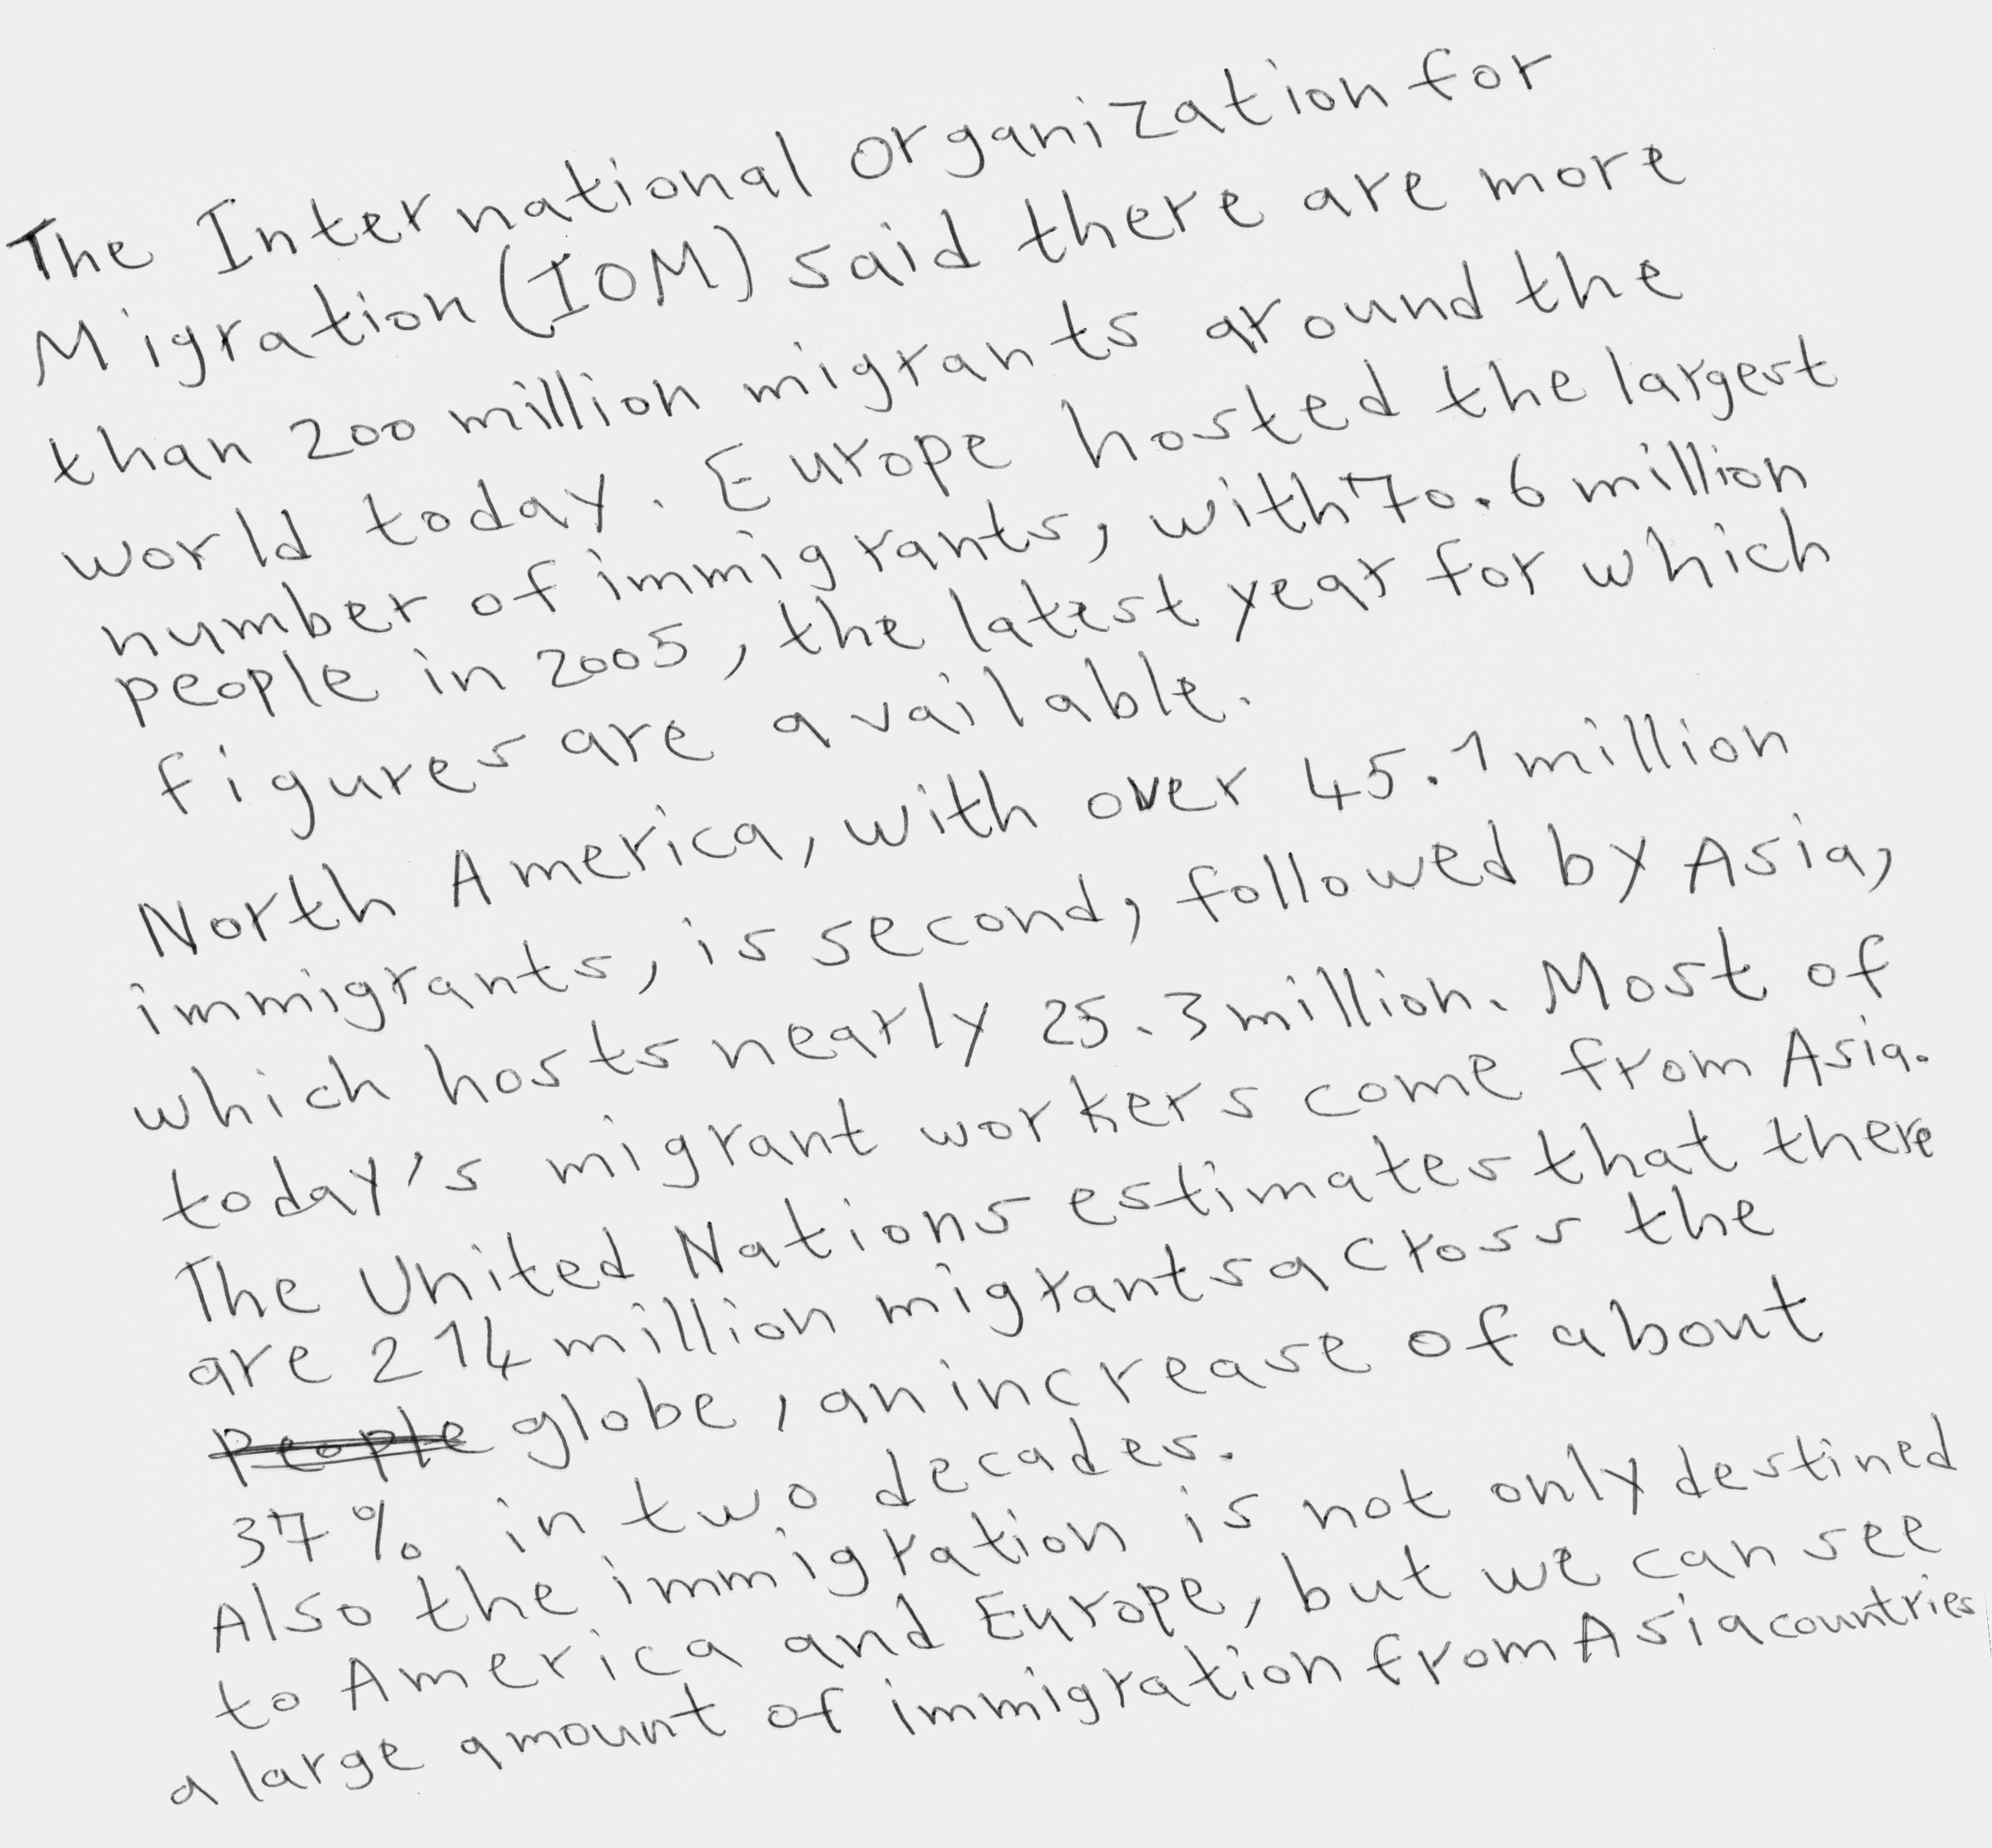 The International organization for
Migration (IOM) said there are more
than 200 million migrants around the
world today. Europe hosted the largest
number of immigrants, with 70.6 million
people in 2005, the latest year for which
figures are available.
North America, with over 45.1 million
immigrants, is second, followed by Asia,
which hosts nearly 25.3 million. Most of
today's migrant workers come from Asia.
The United Nations estimates that there
are 214 million migrants across the
people globe, an increase of about
37% in two decades.
Also the immigration is not only destined
to America and Europe, but we can see
a large amount of immigration from Asia countries